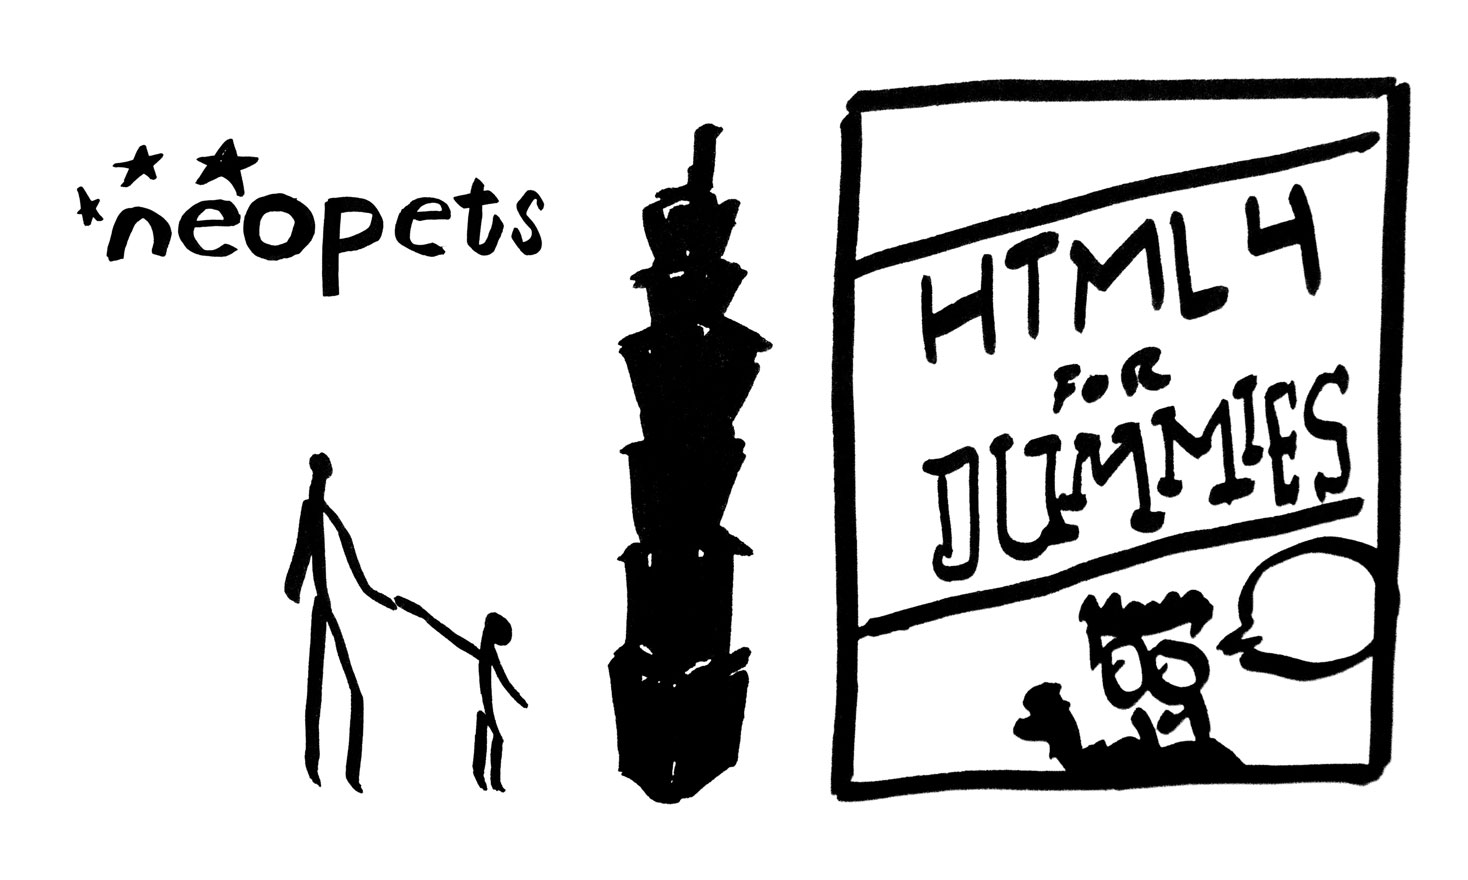 neopets
HTML 4
FOR
DUMMIES